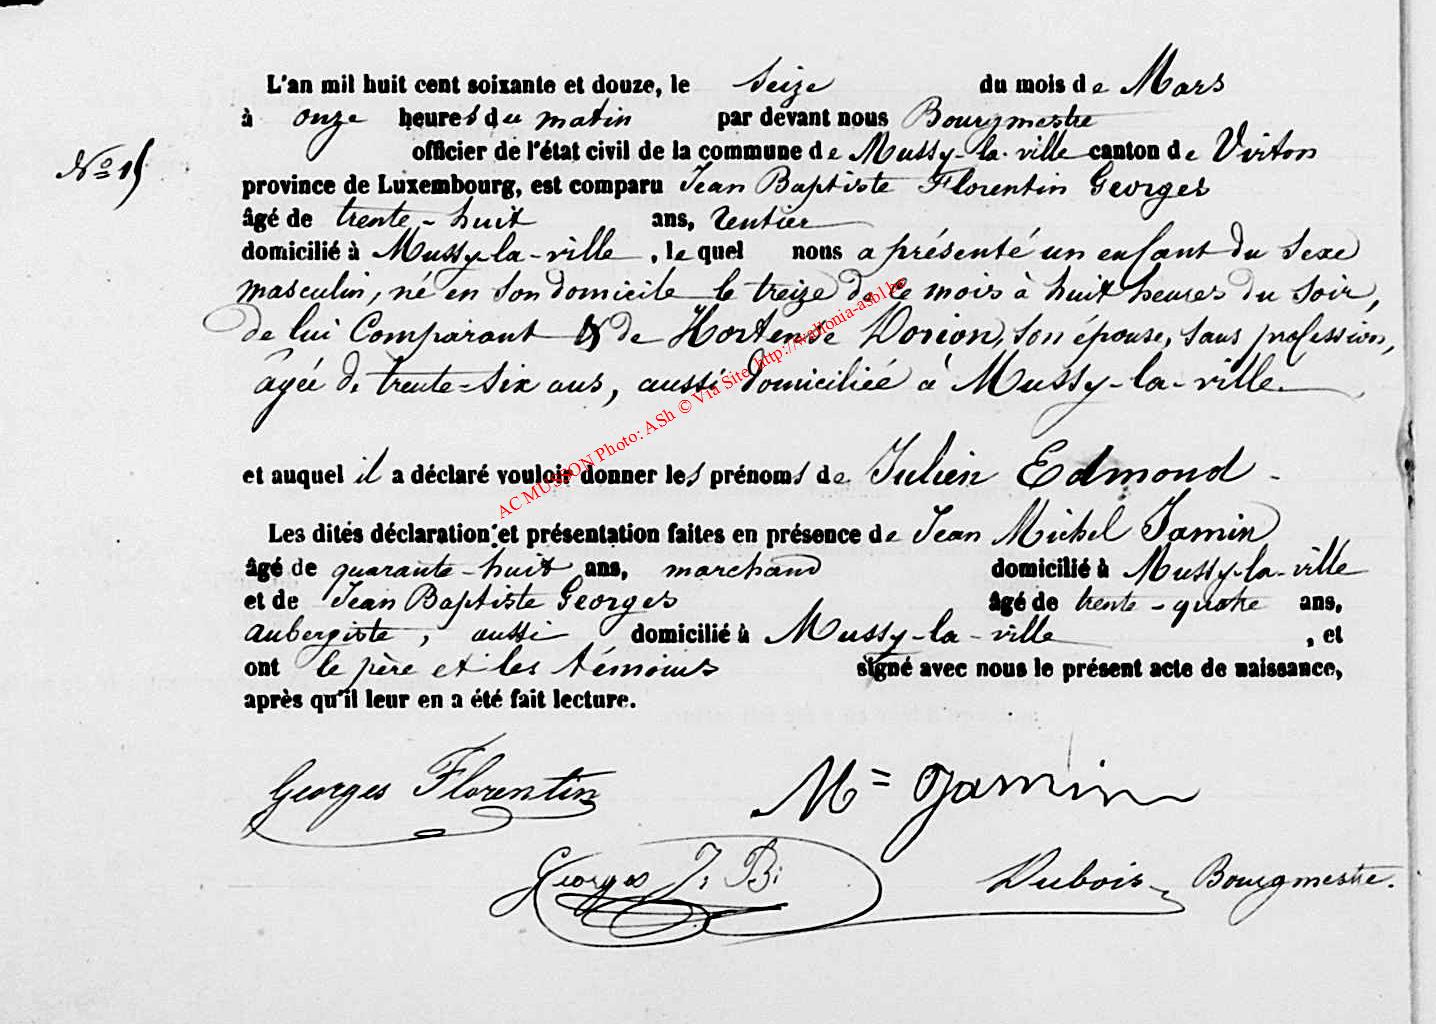 L'an mil huit cent soixante et douze, le Seize du mois de Mars
à onze heures du matin par devant nous Bourgmestre
officier de l'état civil de la commune de Mussy-la-ville canton de Virton
Nº 15
province de Luxembourg, est comparu Jean Baptiste Florentin Georges
âgé de trente-huit ans, rentier
domicilié à Mussy-la-ville, le quel nous a présenté un enfant du sexe
masculin, né en son domicile le treize de ce mois à huit heures du soir,
de lui Comparant & de Hortense Dorion, son épouse, sans profession,
âgée de trente-six ans, aussi domiciliée à Mussy-la-ville.
et auquel il a déclaré vouloir donner les prénoms de Julien Edmond -
Les dites déclaration et présentation faites en présence de Jean Michel Jamin
âgé de quarante-huit ans, marchand domicilié à Mussy-la-ville
et de Jean Baptiste Georges âgé de trente-quatre ans,
aubergiste, aussi domicilié à Mussy-la-ville, et
ont le père et les témoins signé avec nous le présent acte de naissance,
après qu'il leur en a été fait lecture.
Georges Florentin
M= Jamin
Georges J. B.
Dubois Bourgmestre.
AC MUSSON Photo: ASh © Via Site http://wallonia-asbl.be